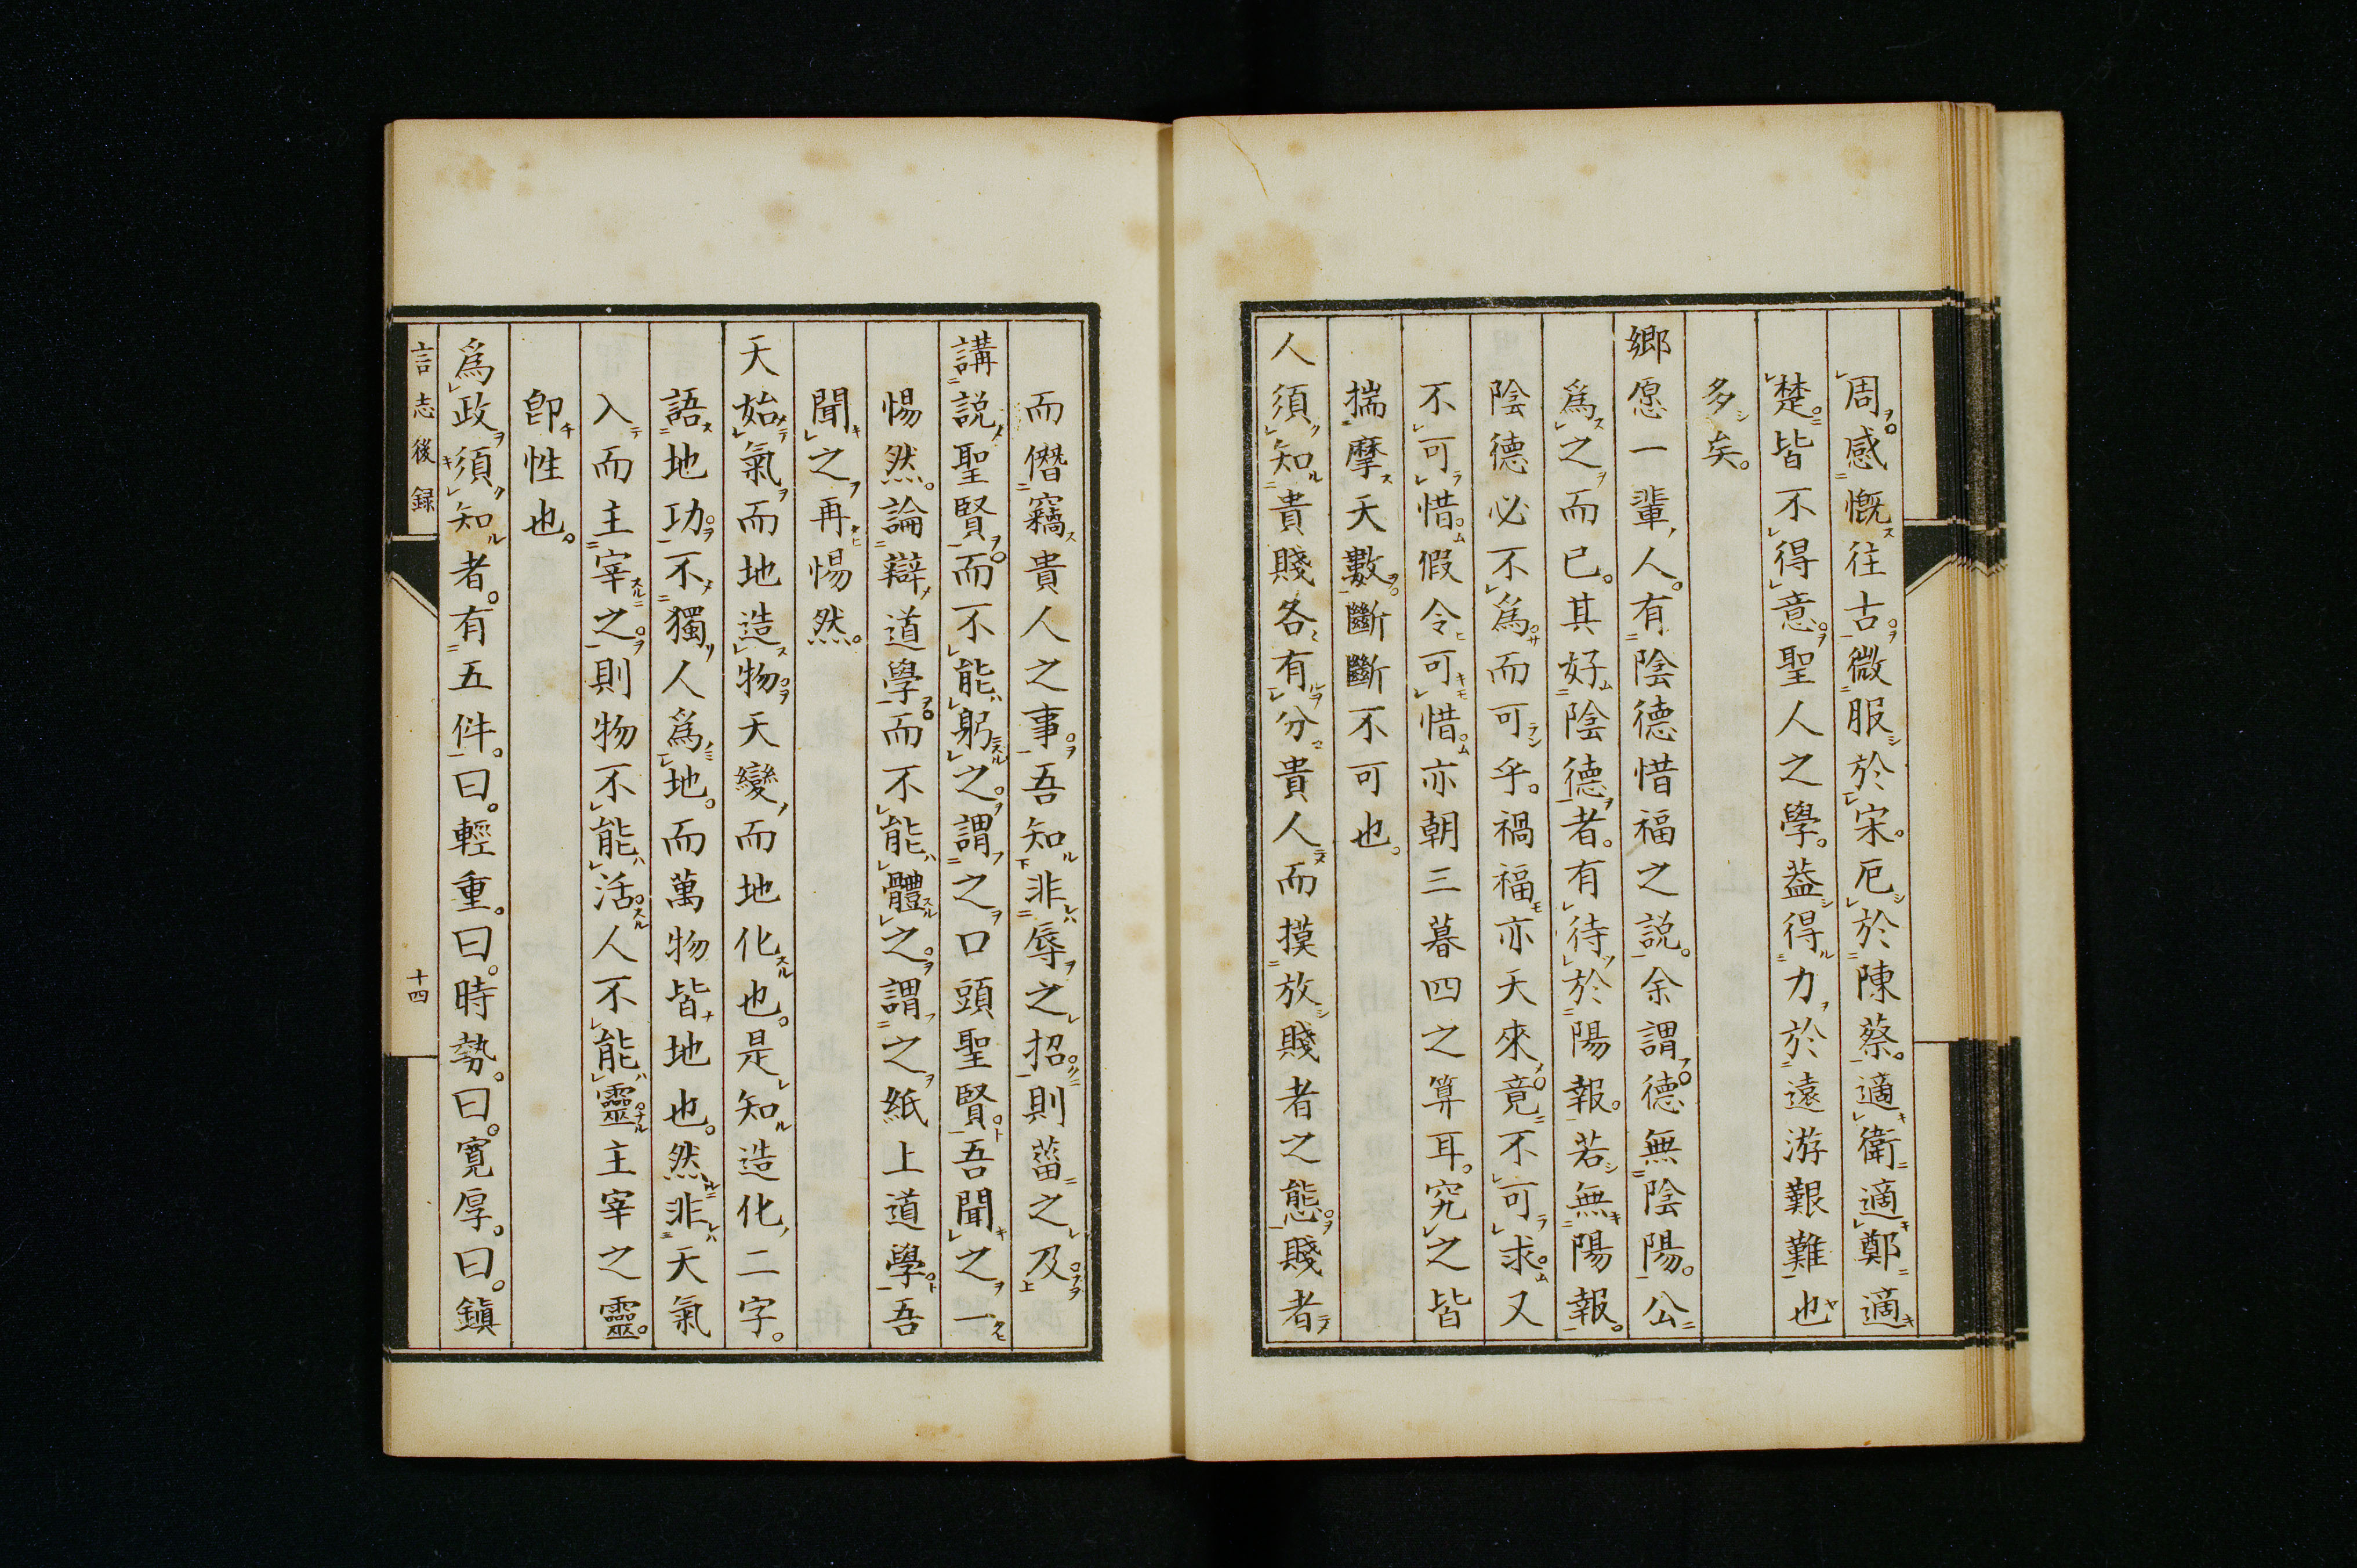 周。感慨往古。微服於宋。厄於陳蔡。適衛適鄭適
楚。皆不得意。聖人之學。葢得力於遠游艱難也
多矣。
鄉愿一輩人。有陰德惜福之説。余謂。德無陰陽。公
爲之而已。其好陰德者。有待於陽報。若無陽報。
陰德必不爲而可乎。禍福亦天來。竟不可求。又
不可惜。假令可惜。亦朝三暮四之算耳。究之皆
揣摩天數。斷斷不可也。
人須知貴賤各有分。貴人而摸放賤者之態。賤者
而僭竊貴人之事。吾知非辱之招。則菑之及
講説聖賢。而不能躬之。謂之口頭聖賢。吾聞之一
惕然。論辯道學。而不能體之。謂之紙上道學。吾
聞之再惕然。
天始氣而地造物。天變而地化也。是知造化二字。
語地功。不獨人爲地。而萬物皆地也。然非天氣
入而主宰之。則物不能活。人不能靈。主宰之靈。
卽性也。
爲政須知者。有五件。曰。輕重。曰。時勢。曰。寛厚。曰。鎭
言志後録
十四